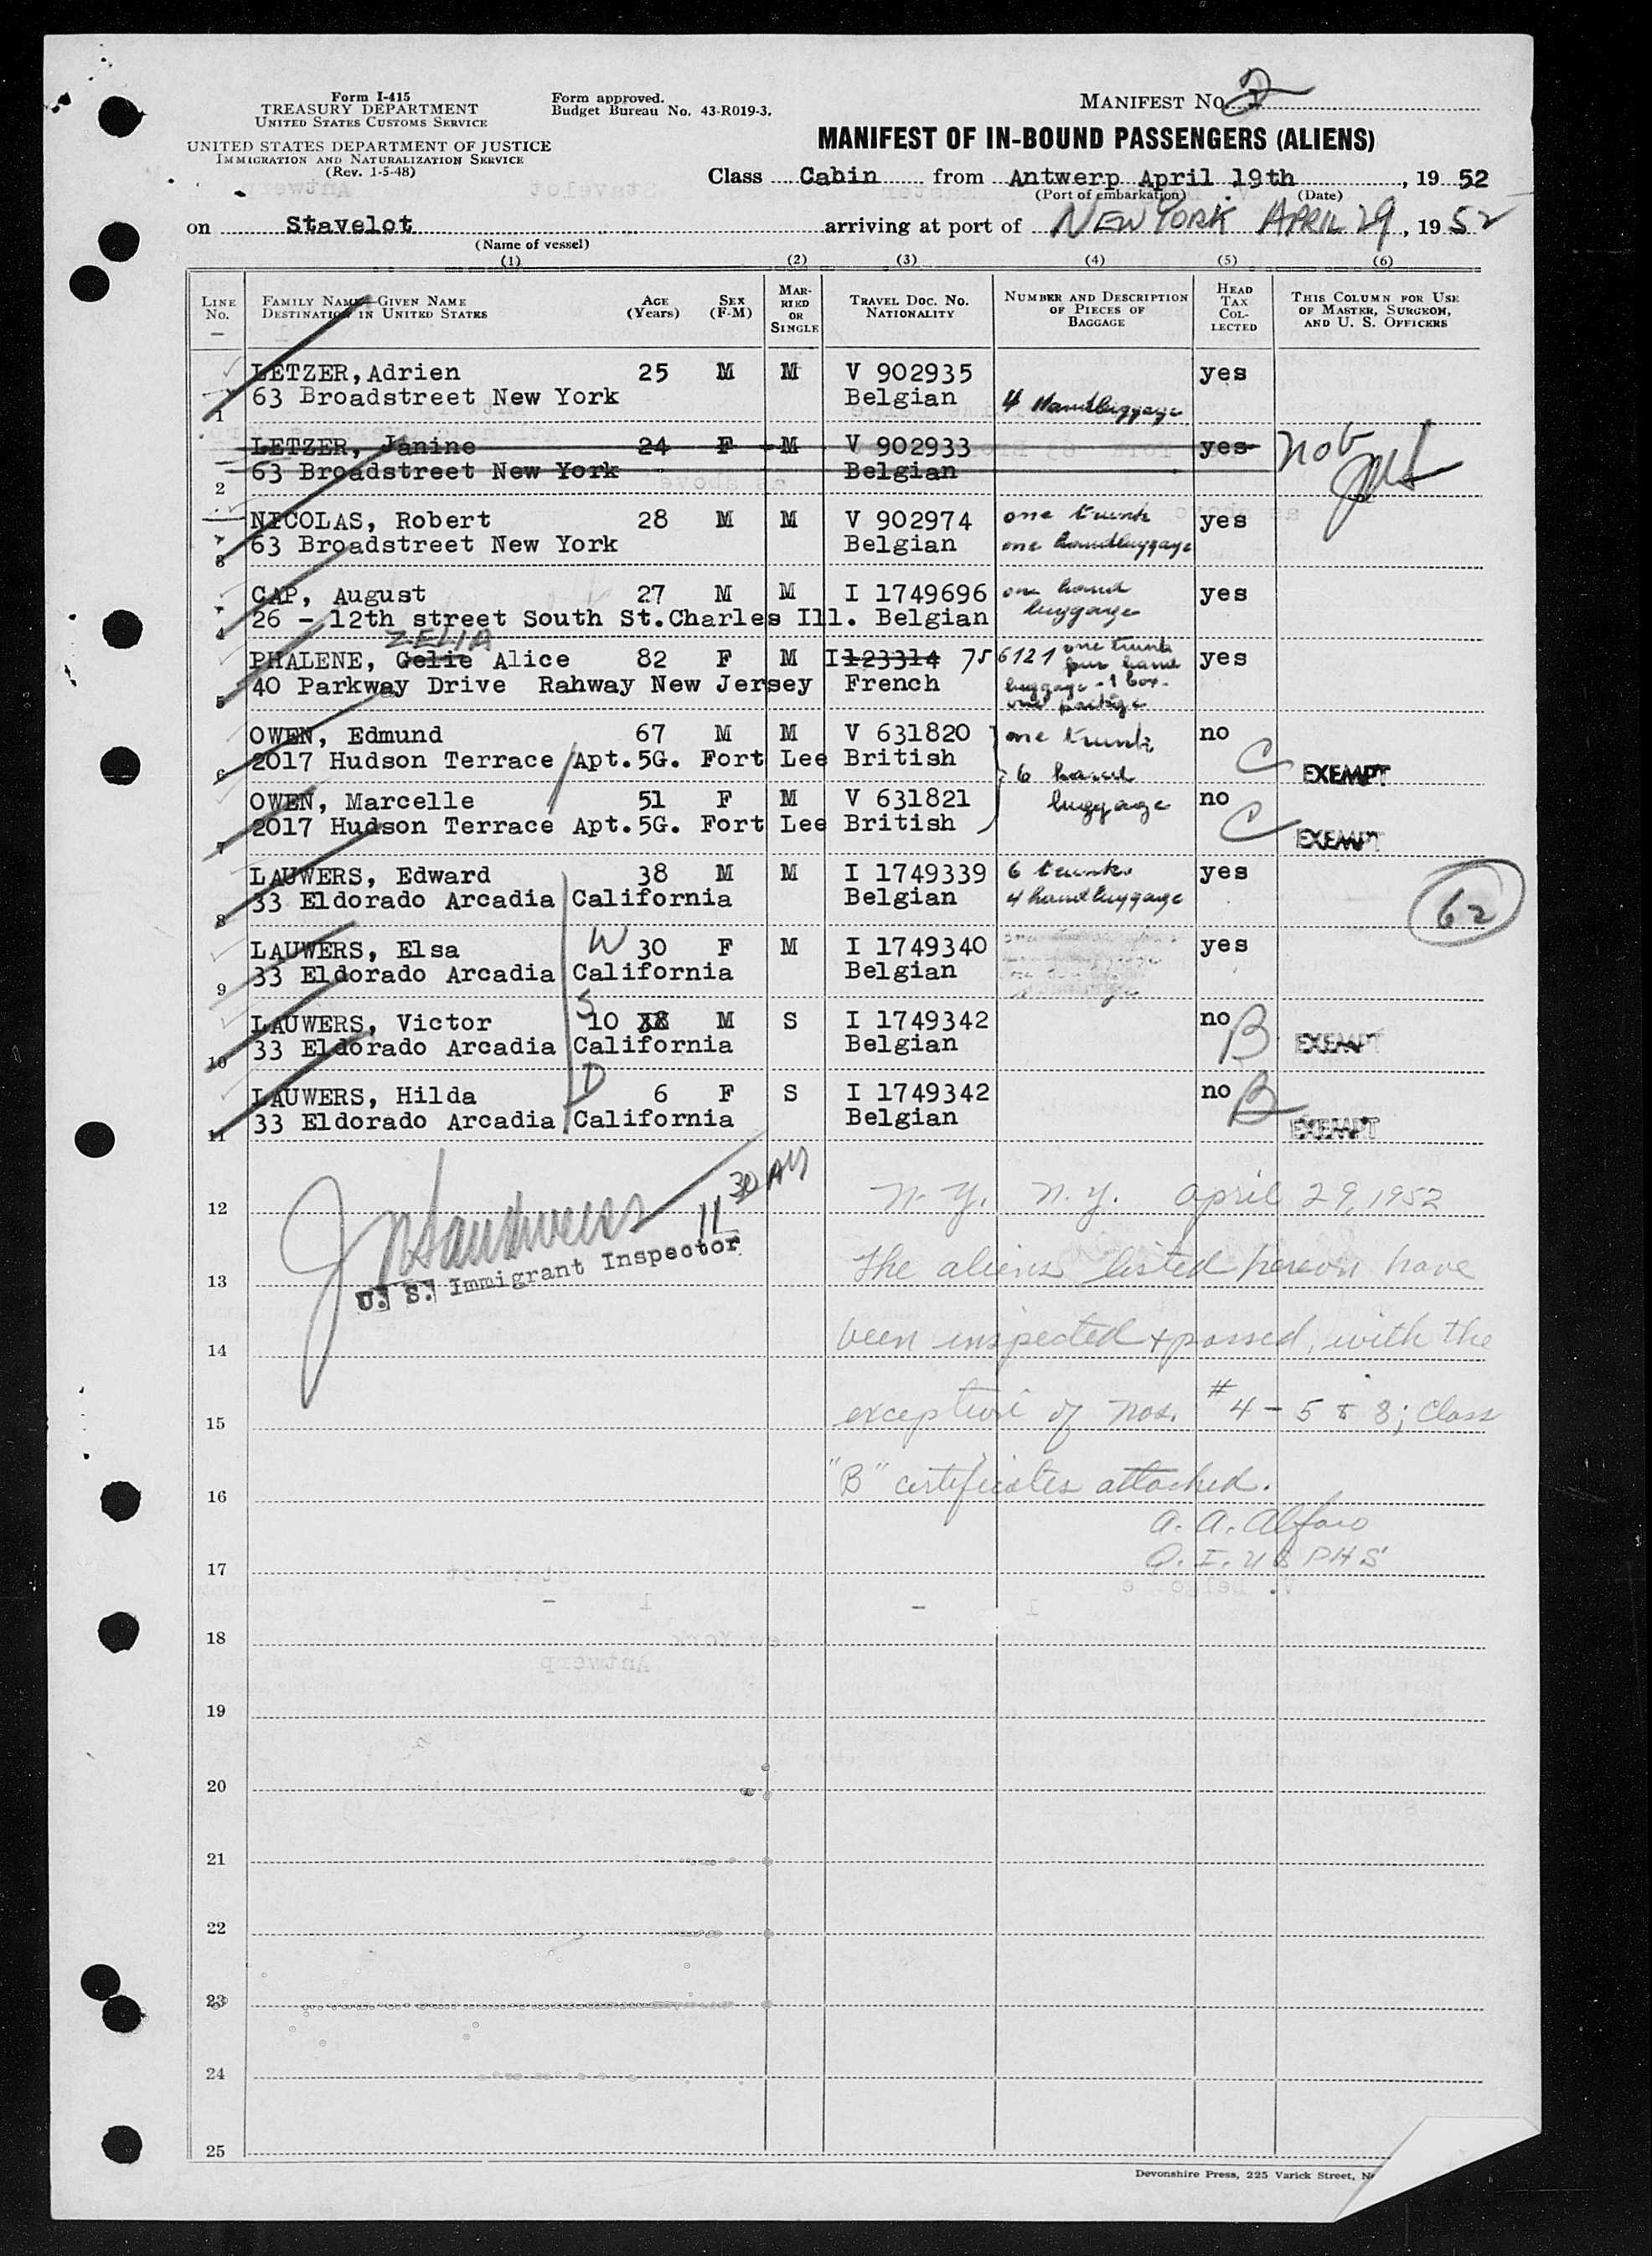 Form I-415
TREASURY DEPARTMENT
UNITED STATES CUSTOMS SERVICE
UNITED STATES DEPARTMENT OF JUSTICE
IMMIGRATION AND NATURALIZATION SERVICE
(Rev. 1-5-48)
Form approved.
Budget Bureau No. 43-R019-3.
MANIFEST NO. 2
MANIFEST OF IN-BOUND PASSENGERS (ALIENS)
Class Cabin from Antwerp April 19th, 19 52
(Port of embarkation) (Date)
on Stavelot arriving at port of NEW YORK APRIL 29, 19 52
(Name of vessel)
(1) (2) (3) (4) (5) (6)
LINE NO. FAMILY NAME—GIVEN NAME DESTINATION IN UNITED STATES AGE (YEARS) SEX (F-M) MARRIED OR SINGLE TRAVEL DOC. NO. NATIONALITY NUMBER AND DESCRIPTION OF PIECES OF BAGGAGE HEAD TAX COLLECTED THIS COLUMN FOR USE OF MASTER, SURGEON, AND U. S. OFFICERS
LETZER, Adrien 25 M M V 902935 yes
1 63 Broadstreet New York Belgian 4 Handluggage
LETZER, Janine 24 F M V 902933 yes not
2 63 Broadstreet New York Belgian
NICOLAS, Robert 28 M M V 902974 one trunk yes
3 63 Broadstreet New York Belgian one handluggage
CAP, August 27 M M I 1749696 one hand yes
4 26 - 12th street South St.Charles Ill. Belgian luggage
ZELIA
PHALENE, Gelie Alice 82 F M I 123314 756121 one trunk four hand yes
5 40 Parkway Drive Rahway New Jersey French luggage - 1 box - one package
OWEN, Edmund 67 M M V 631820 one trunk no C
6 2017 Hudson Terrace Apt.5G. Fort Lee British 6 hand EXEMPT
OWEN, Marcelle 51 F M V 631821 luggage no C
7 2017 Hudson Terrace Apt.5G. Fort Lee British EXEMPT
LAUWERS, Edward 38 M M I 1749339 6 trunks yes
8 33 Eldorado Arcadia California Belgian 4 handluggage 62
LAUWERS, Elsa W 30 F M I 1749340 yes
9 33 Eldorado Arcadia California Belgian
LAUWERS, Victor S 10 38 M S I 1749342 no B
10 33 Eldorado Arcadia California Belgian EXEMPT
LAUWERS, Hilda D 6 F S I 1749342 no B
11 33 Eldorado Arcadia California Belgian EXEMPT
11 30 AM
U. S. Immigrant Inspector
12 N. Y. N. Y. April 29, 1952
13 The aliens listed hereon have
14 been inspected + passed, with the
15 exception of nos. #4 - 5 & 8; Class
16 "B" certificates attached.
A. A. Alfaro
17 Q. I. US PHS
18
19
20
21
22
23
24
25
Devonshire Press, 225 Varick Street,